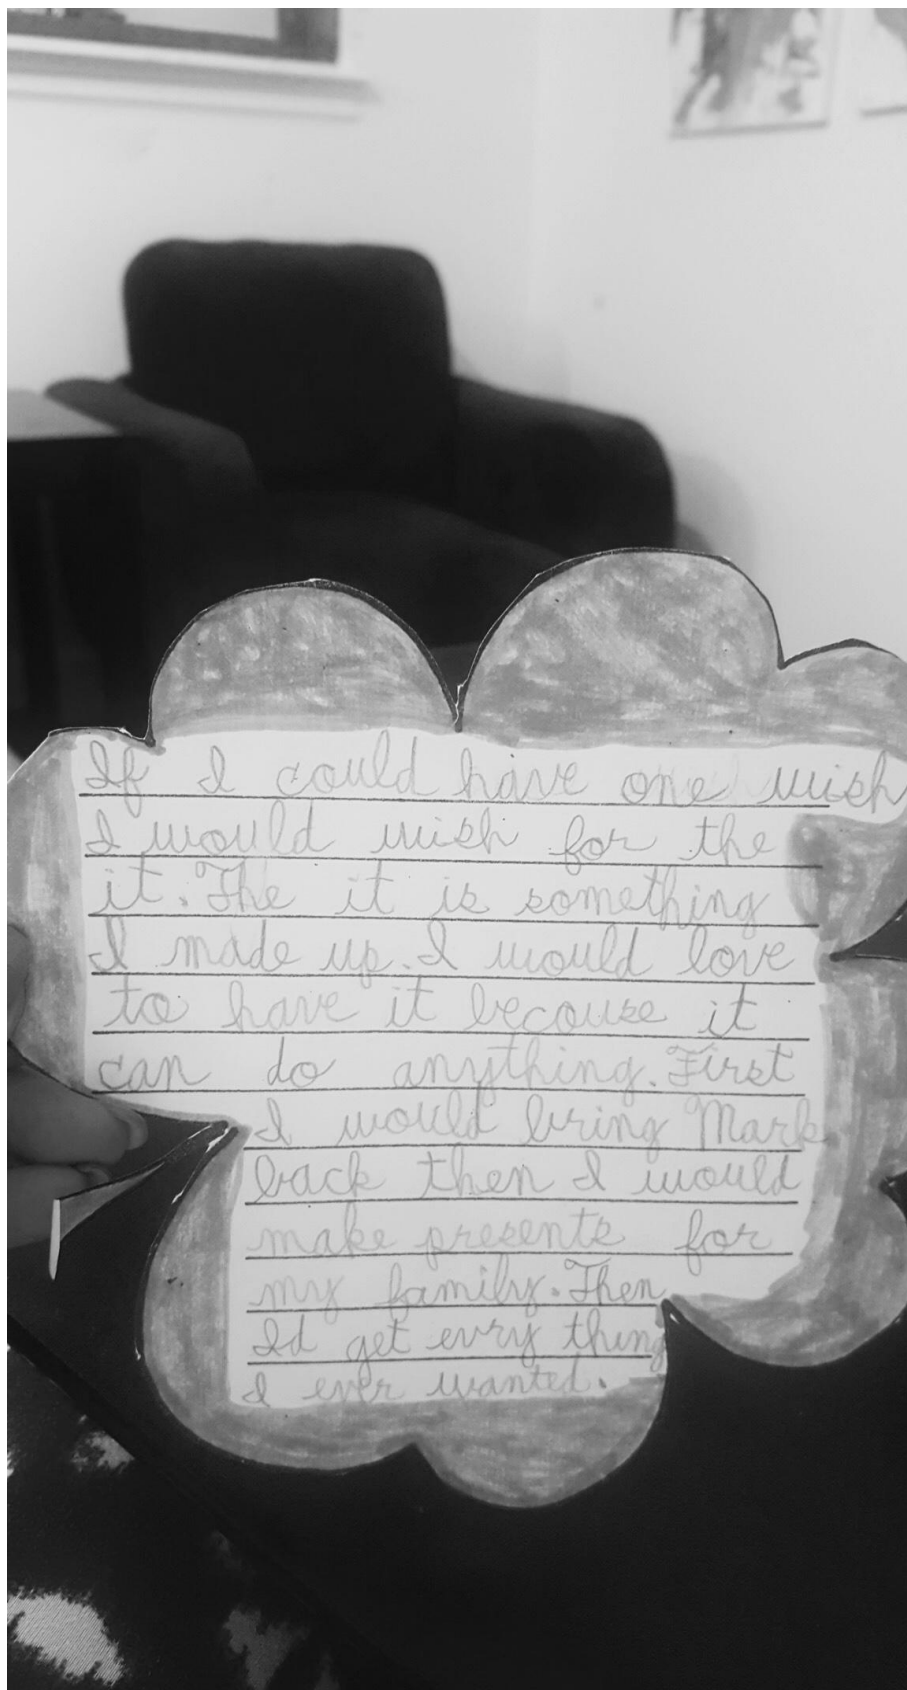 If I could have one wish
I would wish for the
it. The it is something
I made up. I would love
to have it becouse it
can do anything. First
I would bring Mark
back then I would
make presents for
my family. Then
Id get evry thing
I ever wanted.